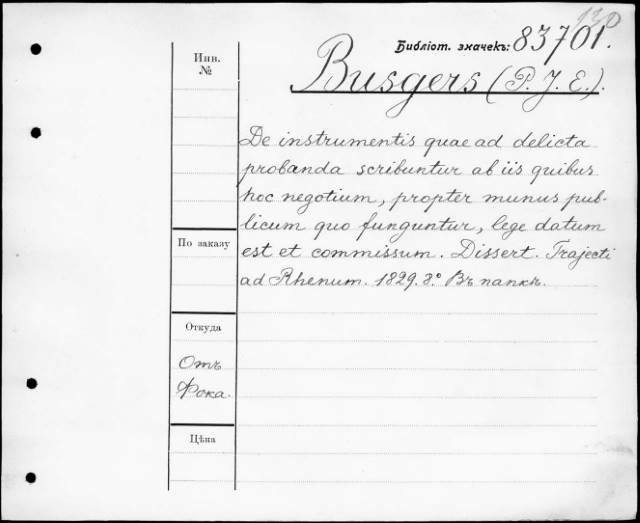 130
Библіот. значекъ: 83701.
Инв.
№
Busgers (P. J. E.).
De instrumentis quae ad delicta
probanda scribuntur ab iis quibus
hoc negotium, propter munus pub-
licum quo funguntur, lege datum
est et commissum. Dissert. Trajecti
ad Rhenum. 1829. 8.° Въ папкѣ.
По заказу
Откуда
Отъ
Фока.
Цѣна